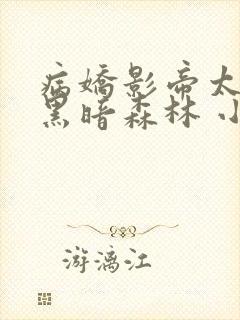 病嬌影帝太
黑暗森林 小
游漓江